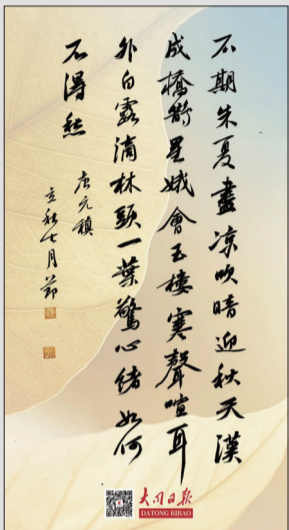 不期朱夏盡涼吹暗迎秋天漢
成橋鵲星娥會玉樓寒聲喧耳
外白露滴林頭一葉驚心緒如何
不得愁
唐元稹
立秋七月節
大同日报
DATONG RIBAO